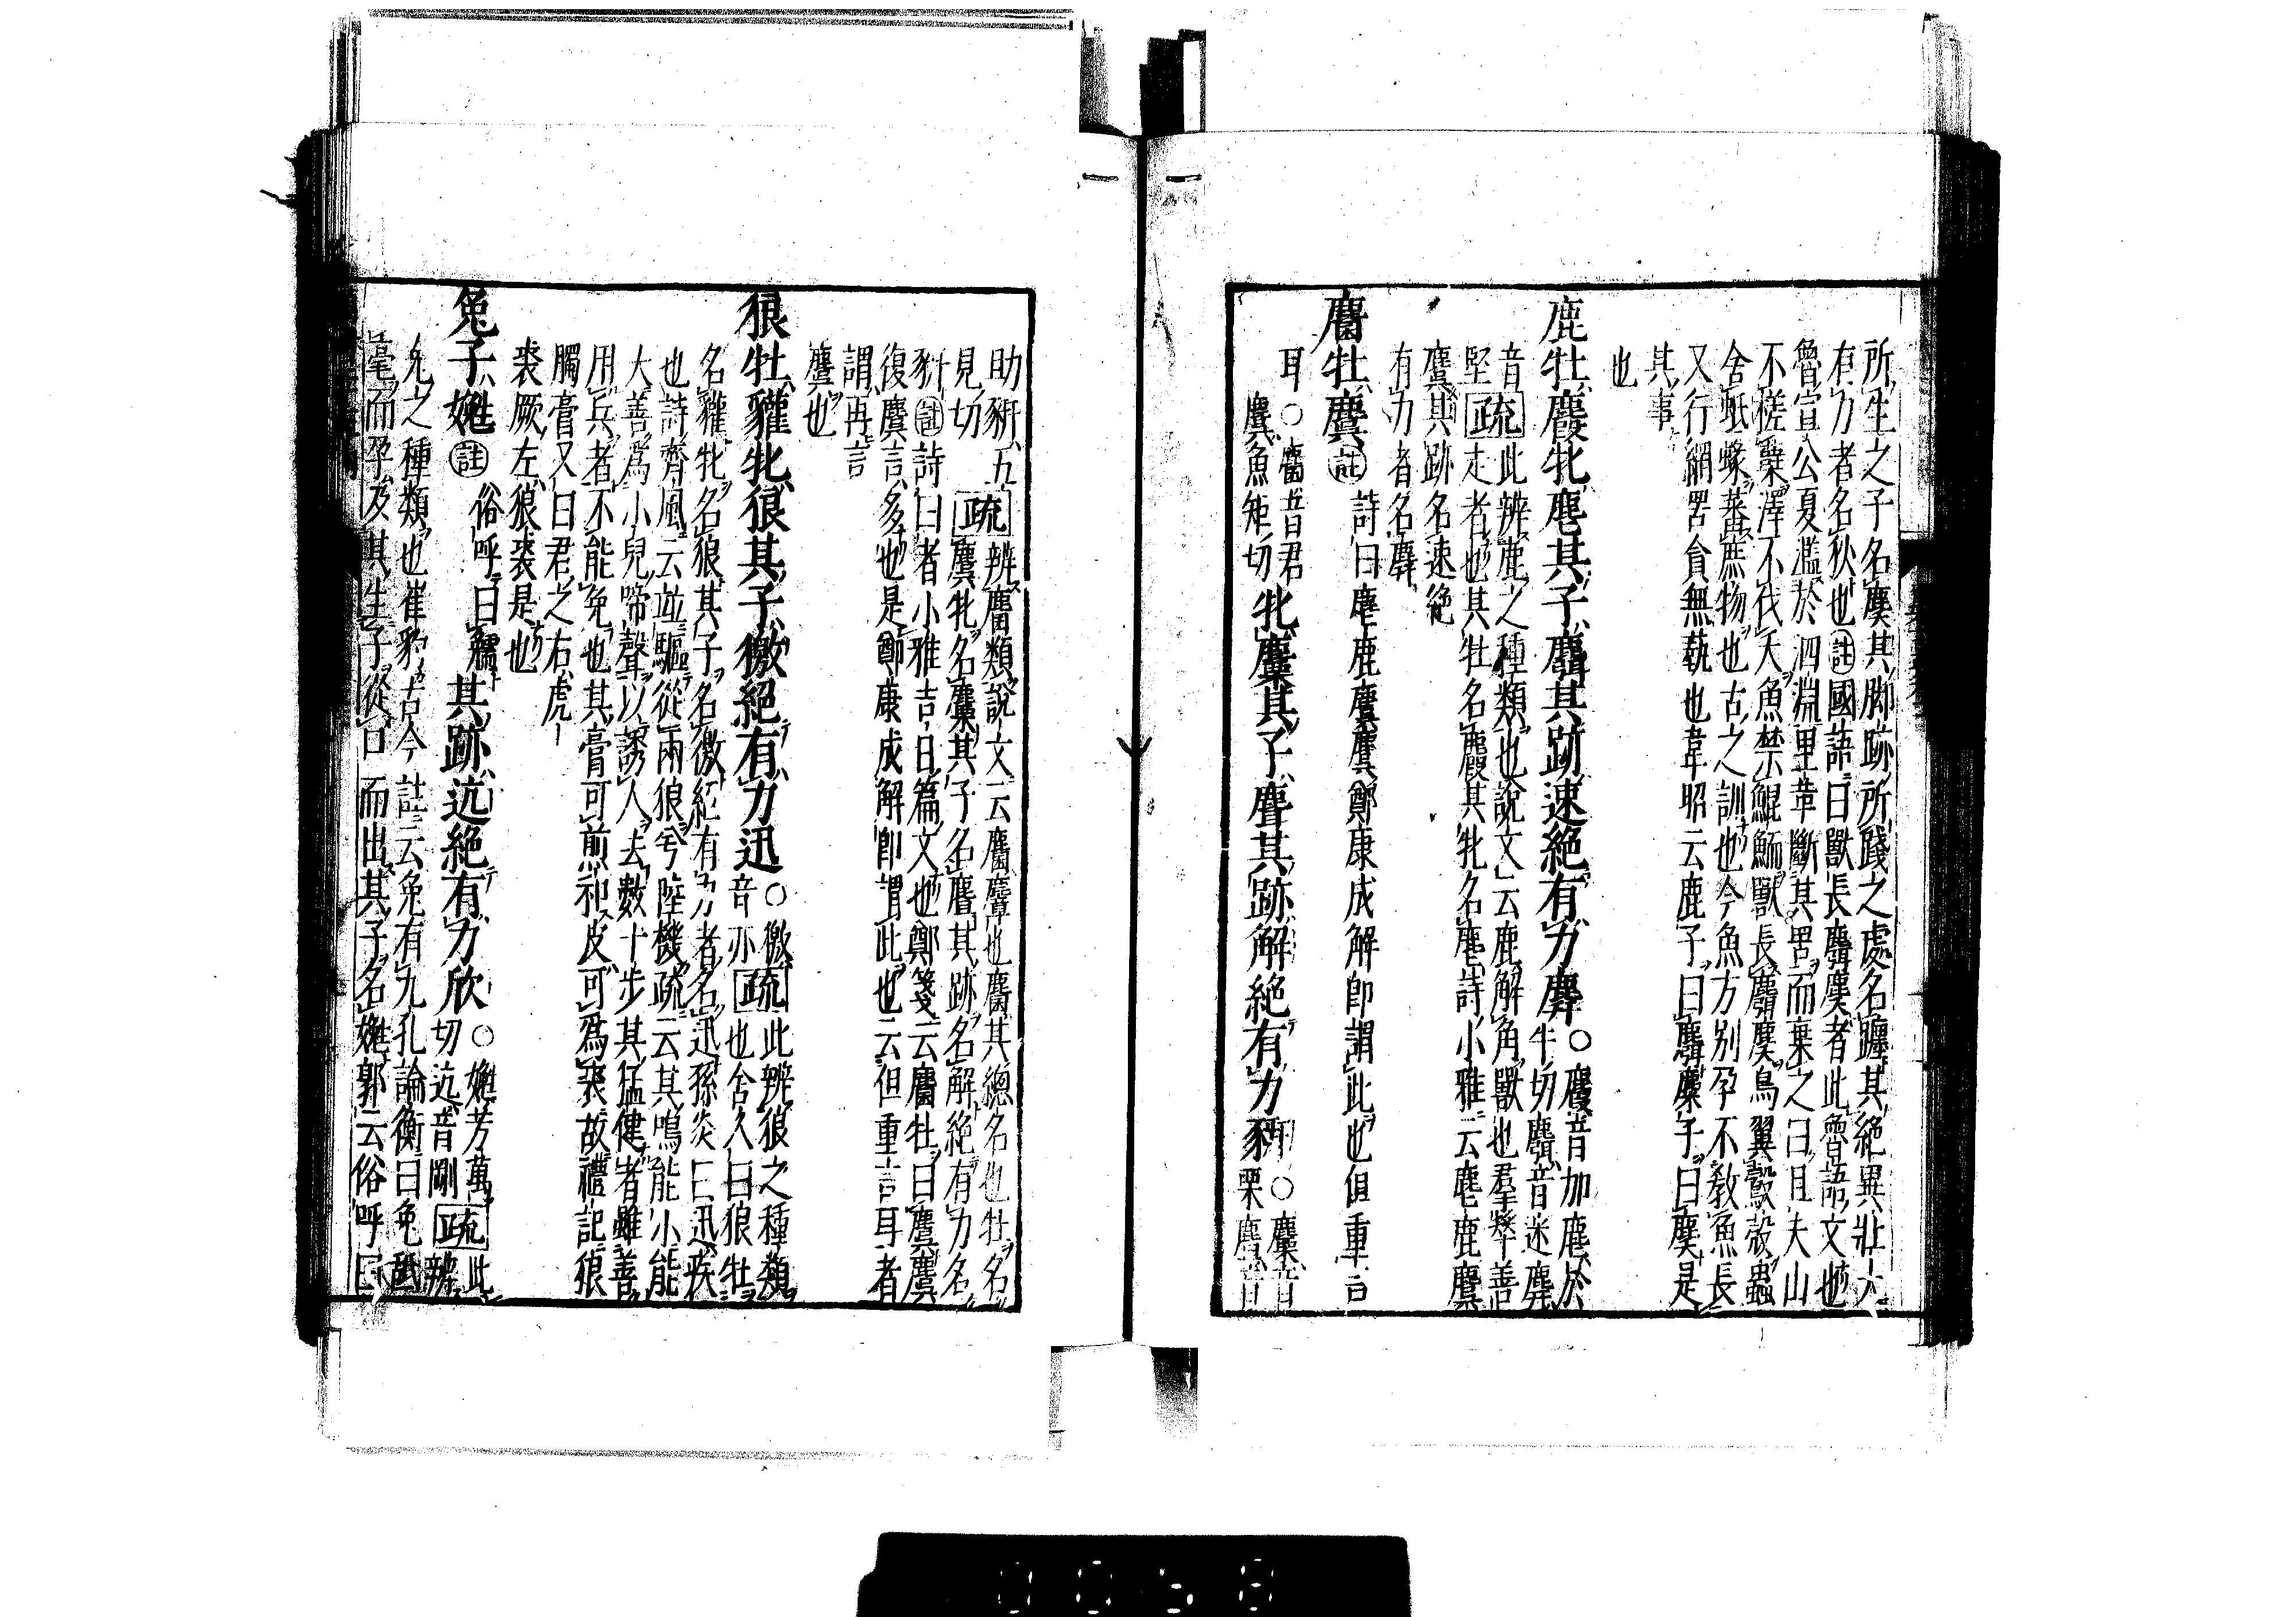 所生之子名麌其脚跡所踐之處名躔其絶異壯大
有力者名狄也註國語曰獸長麛麌者此魯語文也
魯宣公夏濫於泗淵里革斷其罟而棄之曰且夫山
不槎蘖澤不伐夭魚禁鯤鮞獸長麛麌鳥翼鷇殻蟲
舍蚳蝝蕃庶物也古之訓也今魚方別孕不敎魚長
又行網罟貪無藝也韋昭云鹿子曰麛麋子曰麌是
其事
也
鹿牡麚牝麀其子麛其跡速絶有力麉○麚音加麀於
牛切麛音迷麉
音
堅疏此辨鹿之種類也說文云鹿解角獸也羣犇善
走者也其牡名麚其牝名麀詩小雅云麀鹿麌
麌其跡名速絶
有力者名麉
麕牡麌註詩曰麀鹿麌麌鄭康成解即謂此也但重言
耳○麕音君
麌魚矩切牝麜其子麆其跡解絶有力豜○麜音
栗麆音
助豜五
見切疏辨麕類說文云麕麞也麕其總名也牡名
麌牝名麜其子名麆其跡名解絶有力名
豜註詩曰者小雅吉日篇文也鄭箋云麕牡曰麌麌
復麌言多也是鄭康成解即謂此也云但重言耳者
謂再言
麌也
狼牡貛牝狼其子獥絶有力迅○獥
音亦疏此辨狼之種類
也舍人曰狼牡
名貛牝名狼其子名獥絶有力者名迅孫炎曰迅疾
也詩齊風云竝驅從兩狼兮陸機疏云其鳴能小能
大善爲小兒啼聲以誘人去數十步其猛健者雖善
用兵者不能免也其膏可煎和皮可爲裘故禮記狼
臅膏又曰君之右虎
裘厥左狼裘是也
兔子嬎註俗呼曰䨲其跡迒絶有力欣○嬎芳萬
切迒音剛疏此
辨
兔之種類也崔豹古今註云兔有九孔論衡曰兔舐
毫而孕及其生子從口而出其子名嬎郭云俗呼曰